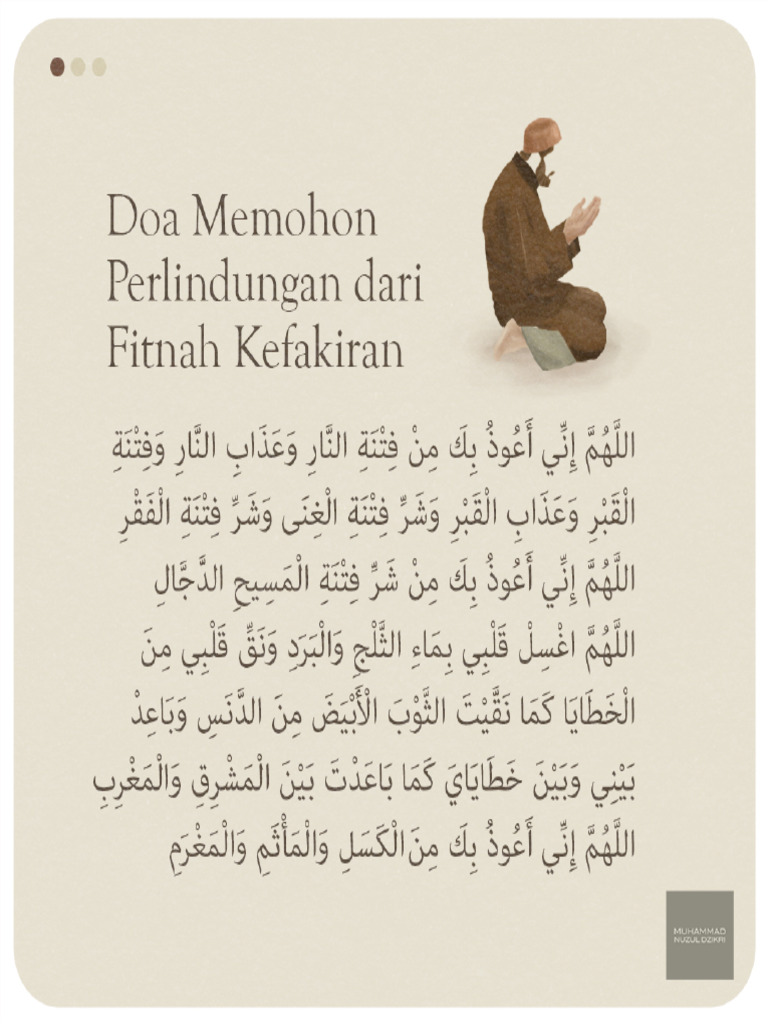 Doa Memohon
Perlindungan dari
Fitnah Kefakiran
اللَّهُمَّ إِنِّي أَعُوذُ بِكَ مِنْ فِتْنَةِ النَّارِ وَعَذَابِ النَّارِ وَفِتْنَةِ
الْقَبْرِ وَعَذَابِ الْقَبْرِ وَشَرِّ فِتْنَةِ الْغِنَى وَشَرِّ فِتْنَةِ الْفَقْرِ
اللَّهُمَّ إِنِّي أَعُوذُ بِكَ مِنْ شَرِّ فِتْنَةِ الْمَسِيحِ الدَّجَّالِ
اللَّهُمَّ اغْسِلْ قَلْبِي بِمَاءِ الثَّلْجِ وَالْبَرَدِ وَنَقِّ قَلْبِي مِنَ
الْخَطَايَا كَمَا نَقَّيْتَ الثَّوْبَ الْأَبْيَضَ مِنَ الدَّنَسِ وَبَاعِدْ
بَيْنِي وَبَيْنَ خَطَايَايَ كَمَا بَاعَدْتَ بَيْنَ الْمَشْرِقِ وَالْمَغْرِبِ
اللَّهُمَّ إِنِّي أَعُوذُ بِكَ مِنَ الْكَسَلِ وَالْمَأْثَمِ وَالْمَغْرَمِ
MUHAMMAD
NUZUL DZIKRI